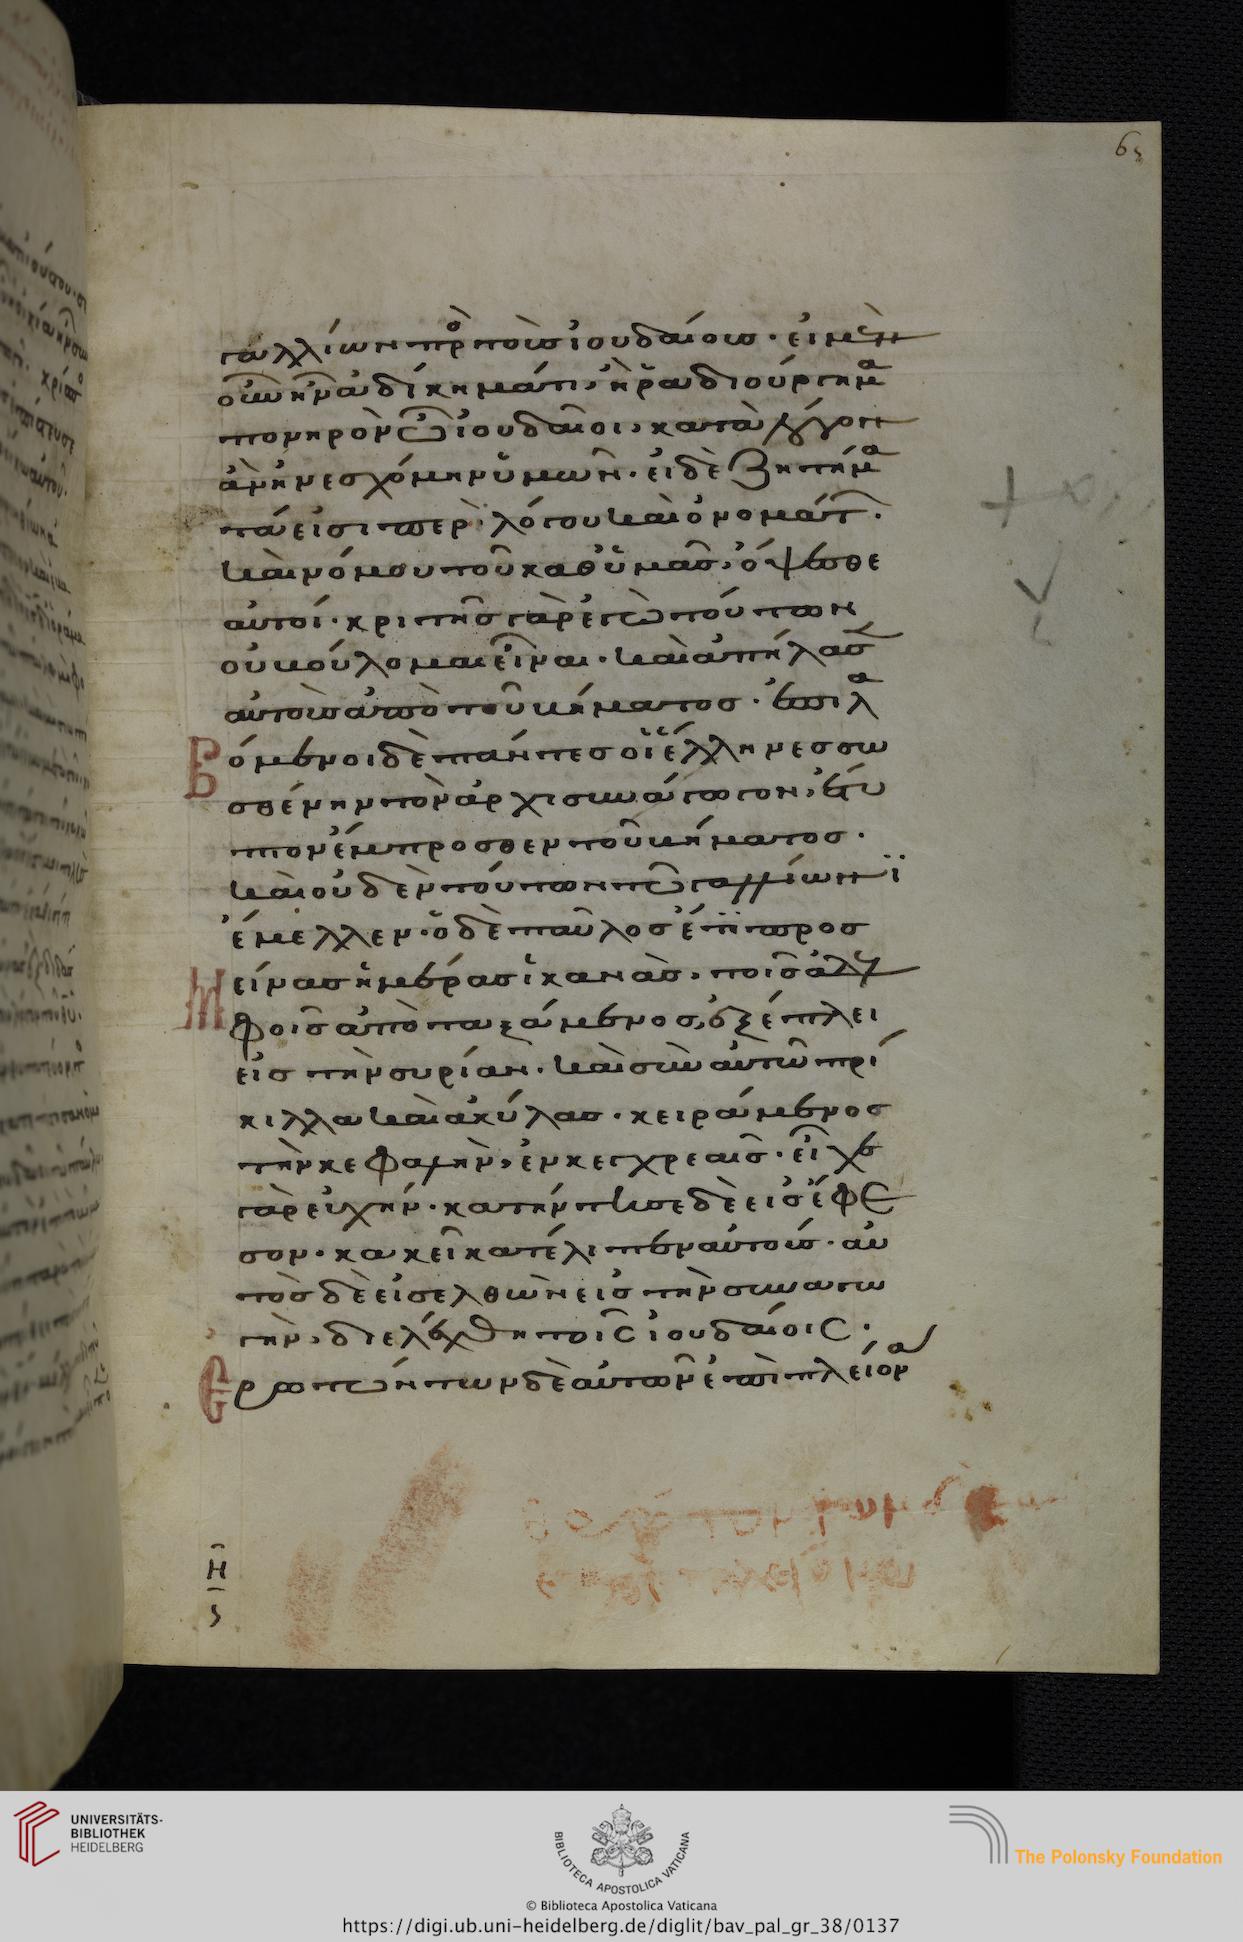 65
γαλλίων πρὸς τοὺς ἰουδαίους · εἰ μὲν
οὖν ἦν ἀδίκημά τι, ἢ ῥαδιούργημα
πονηρὸν ὦ ἰουδαῖοι, κατὰ λόγον
ἂν ἠνεσχόμην ὑμῶν · εἰ δὲ ζητήμα
τά εἰσι περὶ λόγου καὶ ὀνομάτων ·
καὶ νόμου τοῦ καθ ὑμᾶς, ὄψεσθε
αὐτοί · κριτὴς γὰρ ἐγὼ τούτων
οὐ βούλομαι εἶναι · καὶ ἀπήλασεν
αὐτοὺς ἀπὸ τοῦ βήματος · ἐπιλα
βόμενοι δὲ πάντες οἱ ἕλληνες σω
σθένην τὸν ἀρχισυνάγωγον, ἔτυ
πτον ἔμπροσθεν τοῦ βήματος ·
καὶ οὐδὲν τούτων τῶ γαλλίωνι
ἔμελλεν · ὁ δὲ παῦλος ἔτι προσ
μείνας ἡμέρας ἱκανὰς, τοῖς ἀδελ
φοῖς ἀποταξάμενος, ἐξέπλει
εἰς τὴν συρίαν · καὶ σὺν αὐτῶ πρί
σκιλλα καὶ ἀκύλας · κειράμενος
τὴν κεφαλὴν, ἐν κεγχρεαῖς · εἶχε
γὰρ εὐχήν · κατήντησε δὲ εἰς ἔφε
σον · κακεῖ κατέλιπεν αὐτούς · αὐ
τὸς δὲ εἰσελθὼν εἰς τὴν συναγω
γὴν, διελέχθη τοῖς ἰουδαίοις ·
ἐρωτώντων δὲ αὐτῶν ἐπὶ πλείονα
Η
UNIVERSITÄTS-
BIBLIOTHEK
HEIDELBERG
BIBLIOTECA APOSTOLICA VATICANA
The Polonsky Foundation
© Biblioteca Apostolica Vaticana
https://digi.ub.uni-heidelberg.de/diglit/bav_pal_gr_38/0137